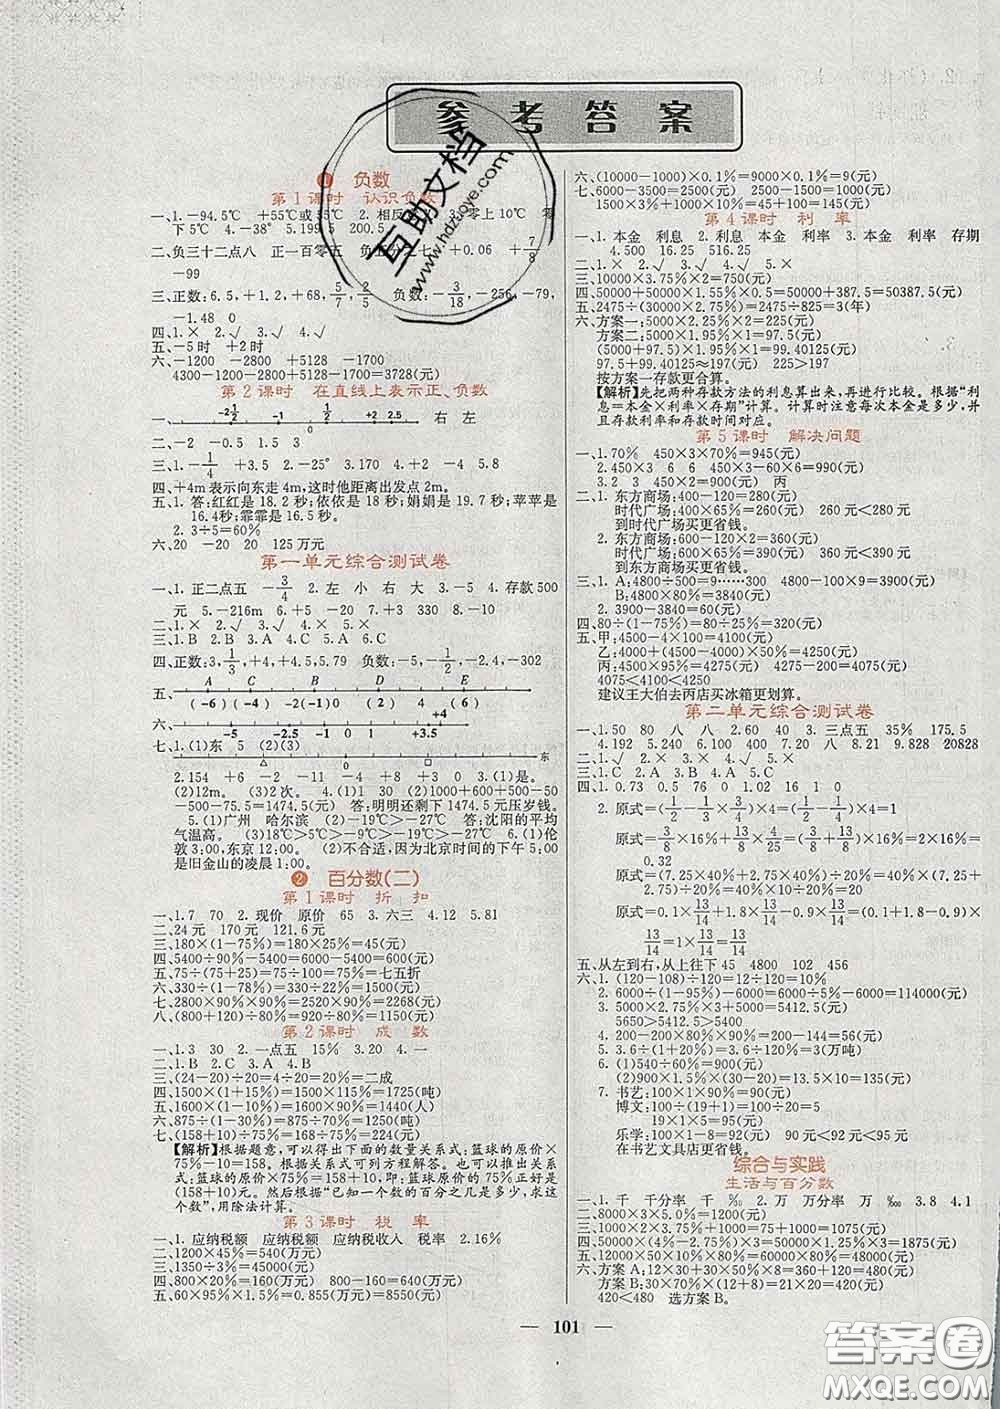 参考答案
互助文档
www.hdzuoye.com
1 负数
第1课时 认识负数
二、负三十二点八 正一百零五
-99
-1.48 0
四、1.× 2.√ 3.√ 4.×
五、-5时 +2时
六、-1200 -2800 +5128 -1700
4300-1200-2800+5128-1700=3728(元)
第2课时 在直线上表示正、负数
右 左
二、-2 -0.5 1.5 3
三、1.-1/4 +3.5 2.-25° 3.170 4.-4 5.8
四、+4m表示向东走4m,这时他距离出发点2m。
五、1.答:红红是18.2秒;依依是18秒;娟娟是19.7秒;苹苹是
16.4秒;霏霏是16.5秒。
2.3÷5=60%
六、20 -20 20 125万元
第一单元综合测试卷
一、1.正二点五 -3/4 2.左 小 右 大 3.-5 4.存款500
元 5.-216m 6.-2 7.205 193 8.-10
二、1.× 2.√ 3.√ 4.× 5.×
三、1.B 2.B 3.A 4.B 5.A 6.C
四、正数:3,1/3,+4,4.5,5.79 负数:-5,-1/2,-2.4,-302
五、 A C B D E
(-6)(-4) -2(-1)0 (2) 4 (6)
六、 -5 -2.5 -1 0 1 +3.5 +4
七、1.(1)东 5 (2)(3)
0 东
2.154 +6 -2 -11 +3 0 3.(1)是。
(2)12m。 (3)2次。 4.(1)30 (2)1000+600+500-50
-500-75.5=1474.5(元) 答:明明还剩下1474.5元压岁钱。
5.(1)广州 哈尔滨 (2)-19℃>-27℃ 答:沈阳的平均
气温高。 (3)18℃>5℃>-3℃>-19℃>-27℃ 6.(1)伦
敦3:00,东京12:00。 (2)不合适,因为北京时间的下午5:00
是旧金山的凌晨1:00。
2 百分数(二)
第1课时 折 扣
一、1.7 70 2.现价 原价 65 3.六三 4.12 5.81
二、24元 170元 121.6元
三、180×(1-75%)=180×25%=45(元)
四、5400÷90%-5400=6000-5400=600(元)
五、75÷(75+25)=75÷100=75%=七五折
六、330÷(1-78%)=330÷22%=1500(元)
七、2800×90%×90%=2520×90%=2268(元)
八、(800+120)÷80%=920÷80%=1150(元)
第2课时 成 数
一、1.3 30 2.一点五 15% 3.20 4.一
二、1.B 2.C 3.A 4.B
三、(24-20)÷20=4÷20=20%=二成
四、1500×(1+15%)=1500×115%=1725(吨)
五、1600×(1-10%)=1600×90%=1440(人)
六、875÷(1-30%)=875÷70%=1250(吨)
七、(158+10)÷75%=168÷75%=224(元)
【解析】根据题意,可以得出下面的数量关系式:篮球的原价×
75%-10=158。根据关系式可列方程解答。也可以根据关系
式:篮球的原价×75%=158+10,就是篮球原价的75%正好是
(158+10)元。然后根据“已知一个数的百分之几是多少,求这
个数”,用除法计算。
第3课时 税 率
一、1.应纳税额 应纳税额 应纳税收入 税率 2.16%
二、1200×45%=540(万元)
三、1350÷3%=45000(元)
四、800×20%=160(万元) 800-160=640(万元)
五、60×95%×1.5%=0.855(万元)=8550(元)
六、(10000-1000)×0.1%=9000×0.1%=9(元)
七、6000-3500=2500(元) 2500-1500=1000(元)
1500×3%+1000×10%=45+100=145(元)
第4课时 利 率
一、1.本金 利息 2.利息 本金 利率 3.本金 利率 存期
4.500 16.25 516.25
二、1.× 2.√ 3.√ 4.√ 5.×
三、10000×3.75%×2=750(元)
四、50000+50000×1.55%×0.5=50000+387.5=50387.5(元)
五、2475÷(30000×2.75%)=2475÷825=3(年)
六、方案一:5000×2.25%×2=225(元)
方案二:5000×1.95%×1=97.5(元)
(5000+97.5)×1.95%×1≈99.40(元)
97.5+99.40≈197(元) 225>197
按方案一存款更合算。
【解析】先把两种存款方法的利息算出来,再进行比较。根据“利
息=本金×利率×存期”计算。计算时注意每次本金是多少,并
且存款利率和存款时间对应。
第5课时 解决问题
一、1.70% 450×3×70%=945(元)
2.450×3 6 6 450×3-60×6=990(元)
3.2 450×2=900(元) 丙
二、1.东方商场:400-120=280(元)
时代广场:400×65%=260(元) 260元<280元
到时代广场买更省钱。
2.东方商场:600-120×2=360(元)
时代广场:600×65%=390(元) 360元<390元
到东方商场买更省钱。
三、1.A:4800÷500=9……300 4800-100×9=3900(元)
B:4800×80%=3840(元)
2.3900-3840=60(元)
四、80÷(1-75%)=80÷25%=320(元)
五、甲:4500-4×100=4100(元)
乙:4000+(4500-4000)×50%=4250(元)
丙:4500×95%=4275(元) 4275>4250>4100
4075<4100<4250
建议王大伯去丙店买冰箱更划算。
第二单元综合测试卷
一、1.50 80 八 八 2.60 40 3.三点五 35% 175.5
4.192 5.240 6.100 400 7.20 八 8.21 9.828 20828
二、1.√ 2.× 3.√ 4.× 5.×
三、1.C 2.A 3.B 4.A 5.C
四、1.0.73 0.5 76 0 1.02 16 1 0
0.32
原式=(7.25×40%+2.75×40%)×2=(7.25+2.75)×40%×2
五、从左到右,从上往下 45 4800 102 456
六、1.(120-108)÷120=12÷120=10%
2.6000÷(1-95%)-6000=120000-6000=114000(元)
3.5000×2.75%×3+5000=5412.5(元)
5650>5412.5
4.200-200×80%×90%=200-144=56(元)
5.3.6÷(1+20%)=3.6÷120%=3(万吨)
6.(1)540÷60%=900(元)
(2)900×1.5%×(30-20)=13.5×10=135(元)
7.书艺:100×1×90%=90(元)
博文:100÷(19+1)=100÷20=5(元)
19×1×5=95(元)
乐学:100×1-8=92(元) 90元<92元<95元
在书艺文具店买更省钱。
综合与实践
生活与百分数
一、1.千 千分率 千 ‰ 2.万 万分率 万 ‱ 3.8 4.1
二、8000×3×5.0%=1200(元)
三、1000×2×3.75%+1000=75+1000=1075(元)
四、50000×(4%-2.75%)×3=50000×1.25%×3=1875(元)
五、12000×50×10%×80%=48000(元)
六、方案A:12×30+30×50%×8=360+120=480(元)
方案B:30×70%×(12+8)=21×20=420(元)
420<480 选方案B。
— 101 —
答案圈
MXQE.COM